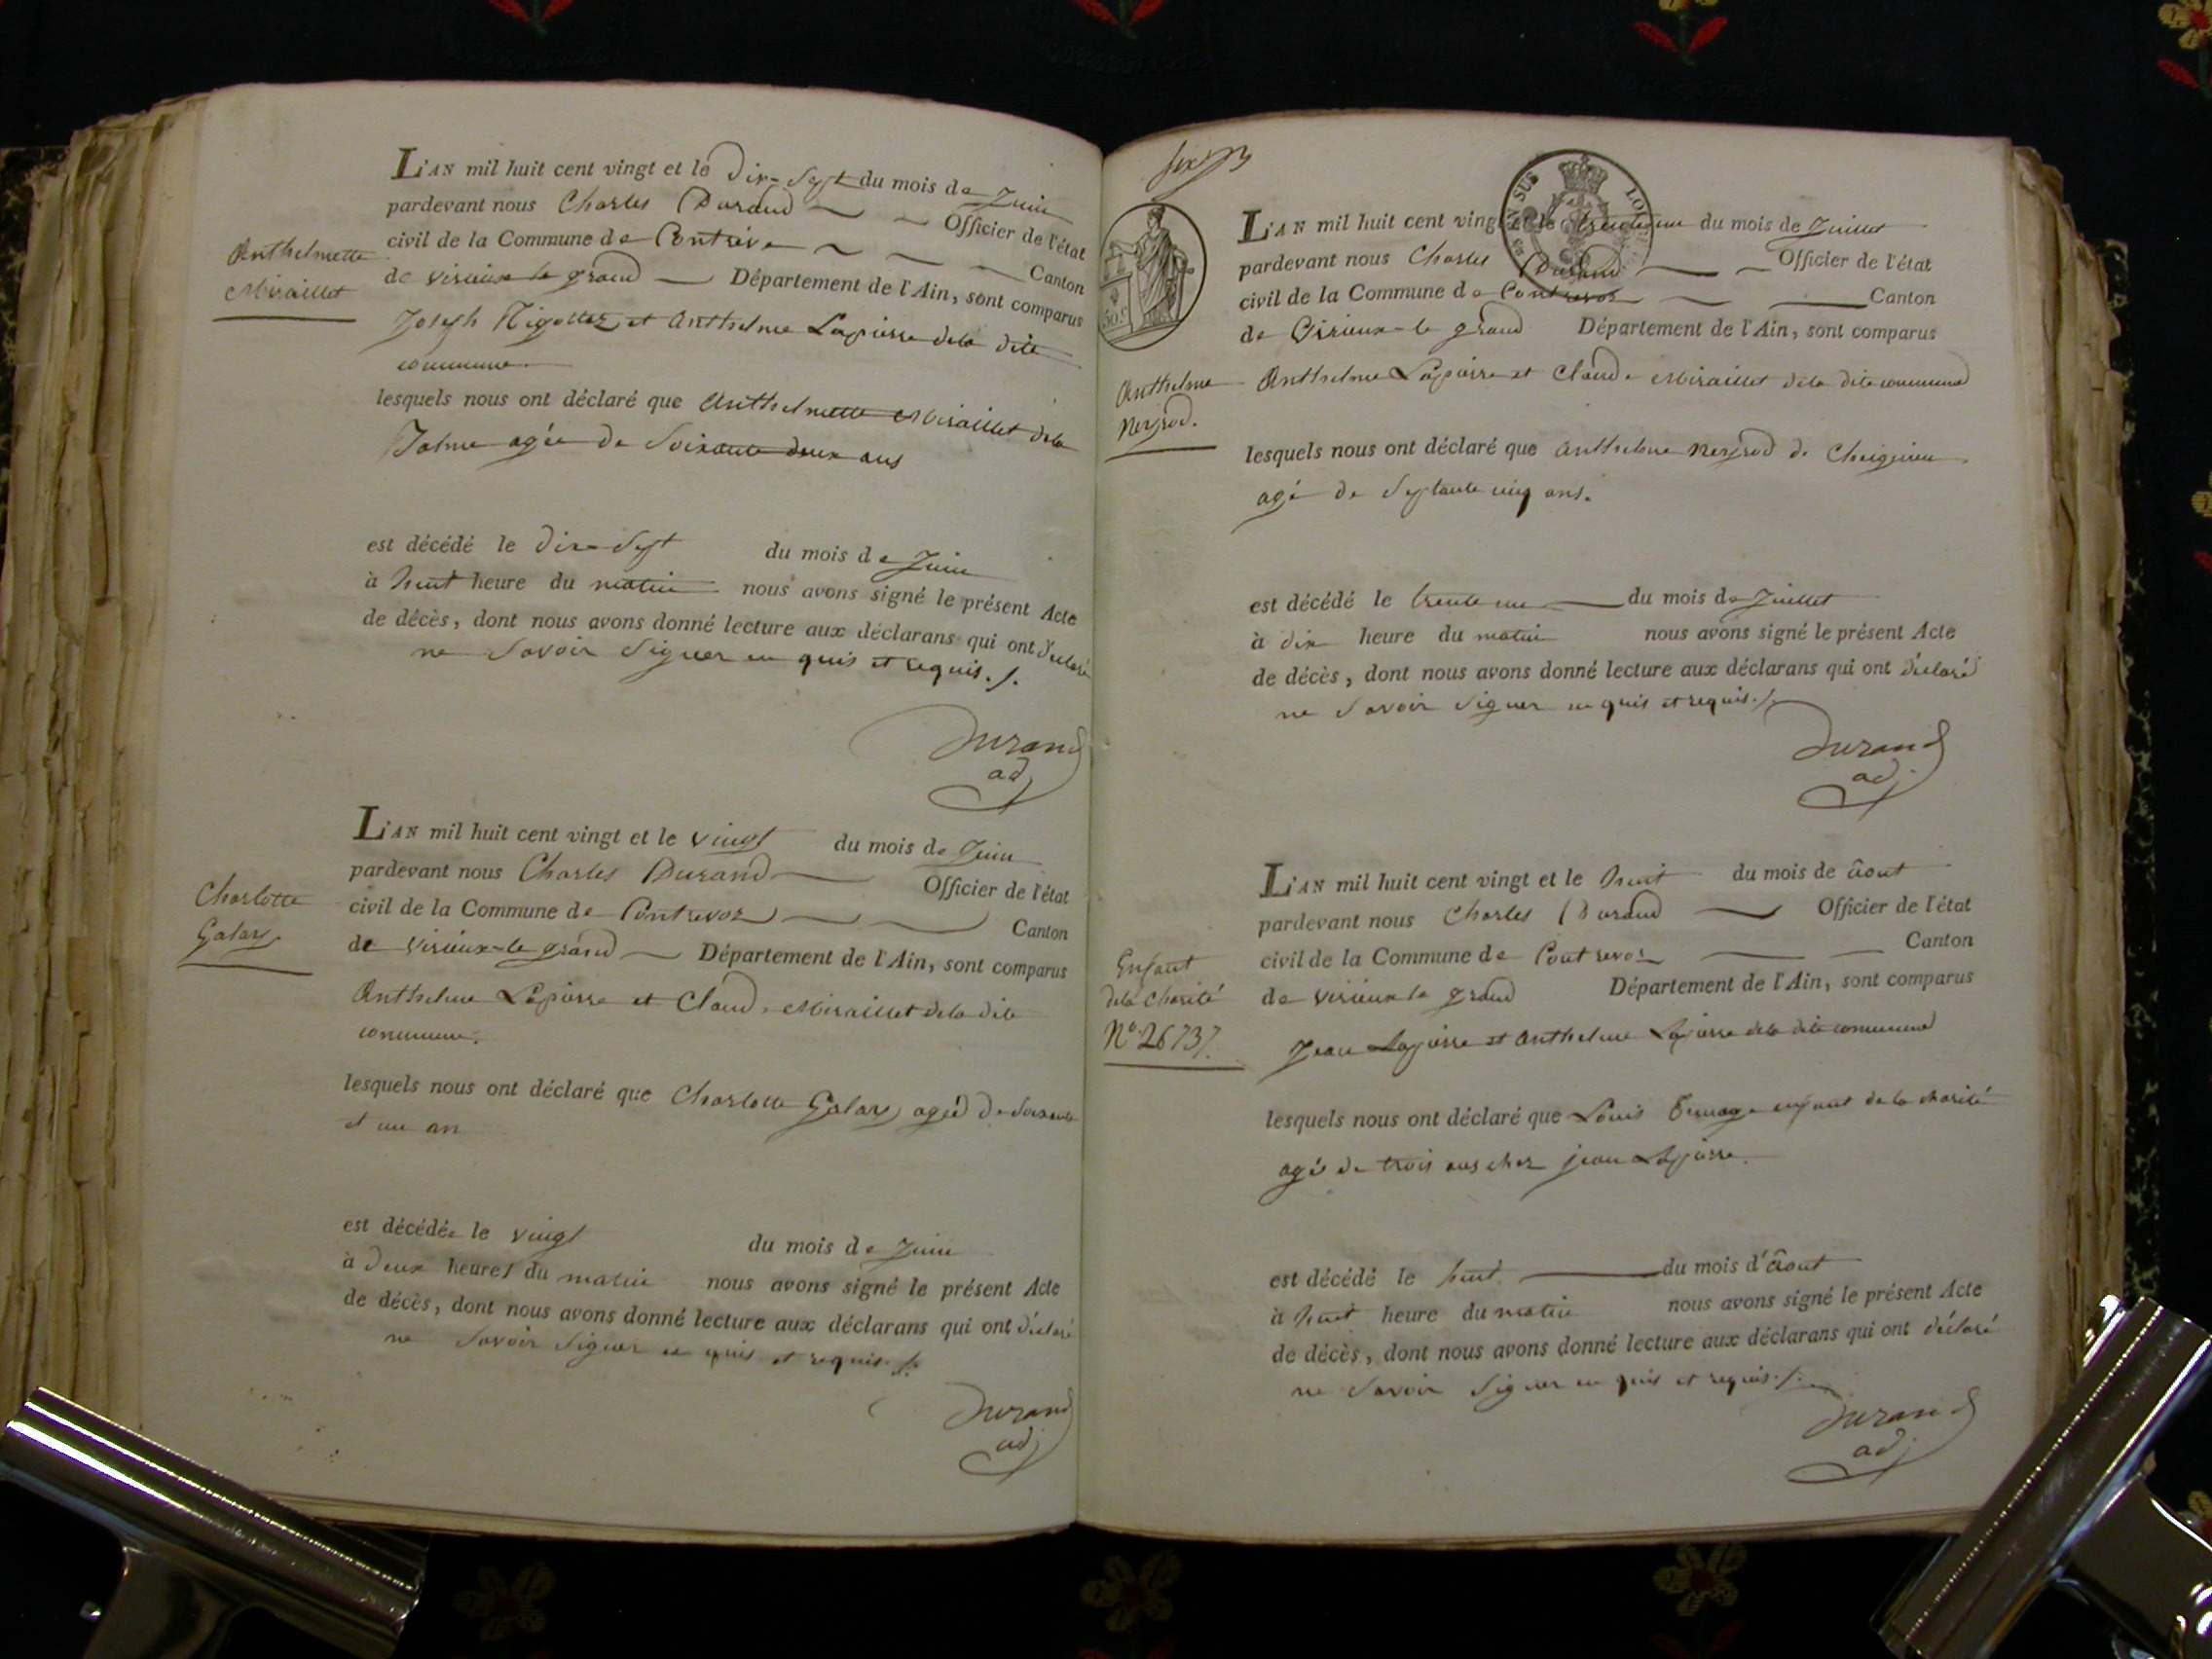 L'AN mil huit cent vingt et le Dix-Sept du mois de Juin
pardevant nous Charles Durand Officier de l'état
civil de la Commune de Contrevo Canton
de virieux le grand Département de l'Ain, sont comparus
Joseph et Anthelme Lapierre dela dite
commune
lesquels nous ont déclaré que Anthelmette Miraillet dela
agée de Soixante deux ans
est décédé le dix-Sept du mois de Juin
à huit heure du matin nous avons signé le présent Acte
de décès, dont nous avons donné lecture aux déclarans qui ont déclaré
ne Savoir Signer en quis et requis./.
Durand
adj
Anthelmette
Miraillet
L'AN mil huit cent vingt et le vingt du mois de Juin
pardevant nous Charles Durand Officier de l'état
civil de la Commune de Contrevoz Canton
de virieux-le grand Département de l'Ain, sont comparus
Anthelme Lapierre et Claude Miraillet dela dite
commune.
lesquels nous ont déclaré que Charlotte Galay agéé de Soixante
et un an
est décédée le vingt du mois de Juin
à Deux heures du matin nous avons signé le présent Acte
de décès, dont nous avons donné lecture aux déclarans qui ont déclaré
ne Savoir Signer en quis et requis./.
Durand
adj
Charlotte
Galay
L'AN mil huit cent vingt et le trenteune du mois de Juillet
pardevant nous Charles Durand Officier de l'état
civil de la Commune de Contrevoz Canton
de Virieux-le grand Département de l'Ain, sont comparus
Anthelme Lapierre et Claude Miraillet dela dite commune
lesquels nous ont déclaré que Anthelme Neyrod de Cheignieu
agé de Septante cinq ans.
est décédé le trente une du mois de Juillet
à dix heure du matin nous avons signé le présent Acte
de décès, dont nous avons donné lecture aux déclarans qui ont déclaré
ne Savoir Signer en quis et requis./.
Durand
adj.
Anthelme
Neyrod.
L'AN mil huit cent vingt et le huit du mois de âout
pardevant nous Charles Durand Officier de l'état
civil de la Commune de Contrevoz Canton
de virieux le grand Département de l'Ain, sont comparus
Jean Lapierre et Anthelme Lapierre dela dite commune
lesquels nous ont déclaré que Louis enfant de la charité
agé de trois ans chez jean Lapierre.
est décédé le huit du mois d'âout
à huit heure du matin nous avons signé le présent Acte
de décès, dont nous avons donné lecture aux déclarans qui ont déclaré
ne Savoir Signer en quis et requis./.
Durand
adj
Enfant
dela charité
N° 26737.
EN SUS
50.c